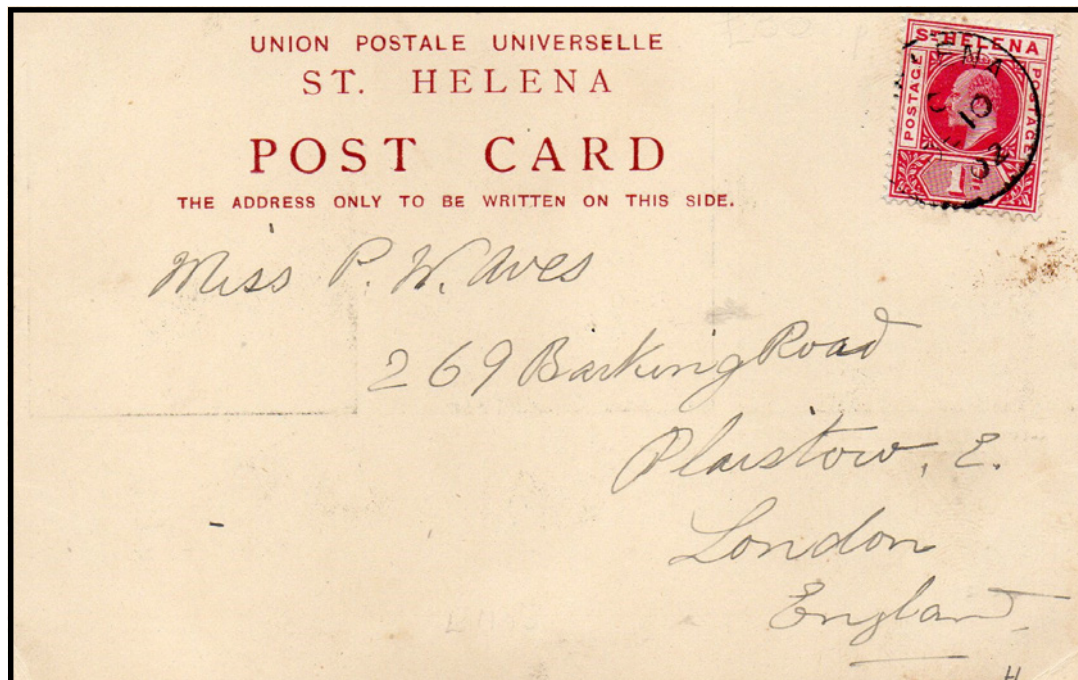 UNION POSTALE UNIVERSELLE
ST. HELENA
POST CARD
THE ADDRESS ONLY TO BE WRITTEN ON THIS SIDE.
ST HELENA
POSTAGE
POSTAGE
1
ENA
C
10
02
Miss P. W. Aves
269 Barking Road
Plaistow, E.
London
England
H